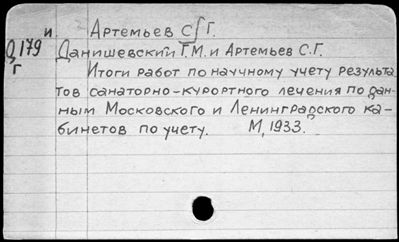 и Артемьев С Г.
Q 179 Данишевский Г.М. и Артемьев С.Г.
Г Итоги работ по научному учету результа
тов санаторно-курортного лечения по дан-
ным Московского и Ленинградского ка-
бинетов по учету. М, 1933.